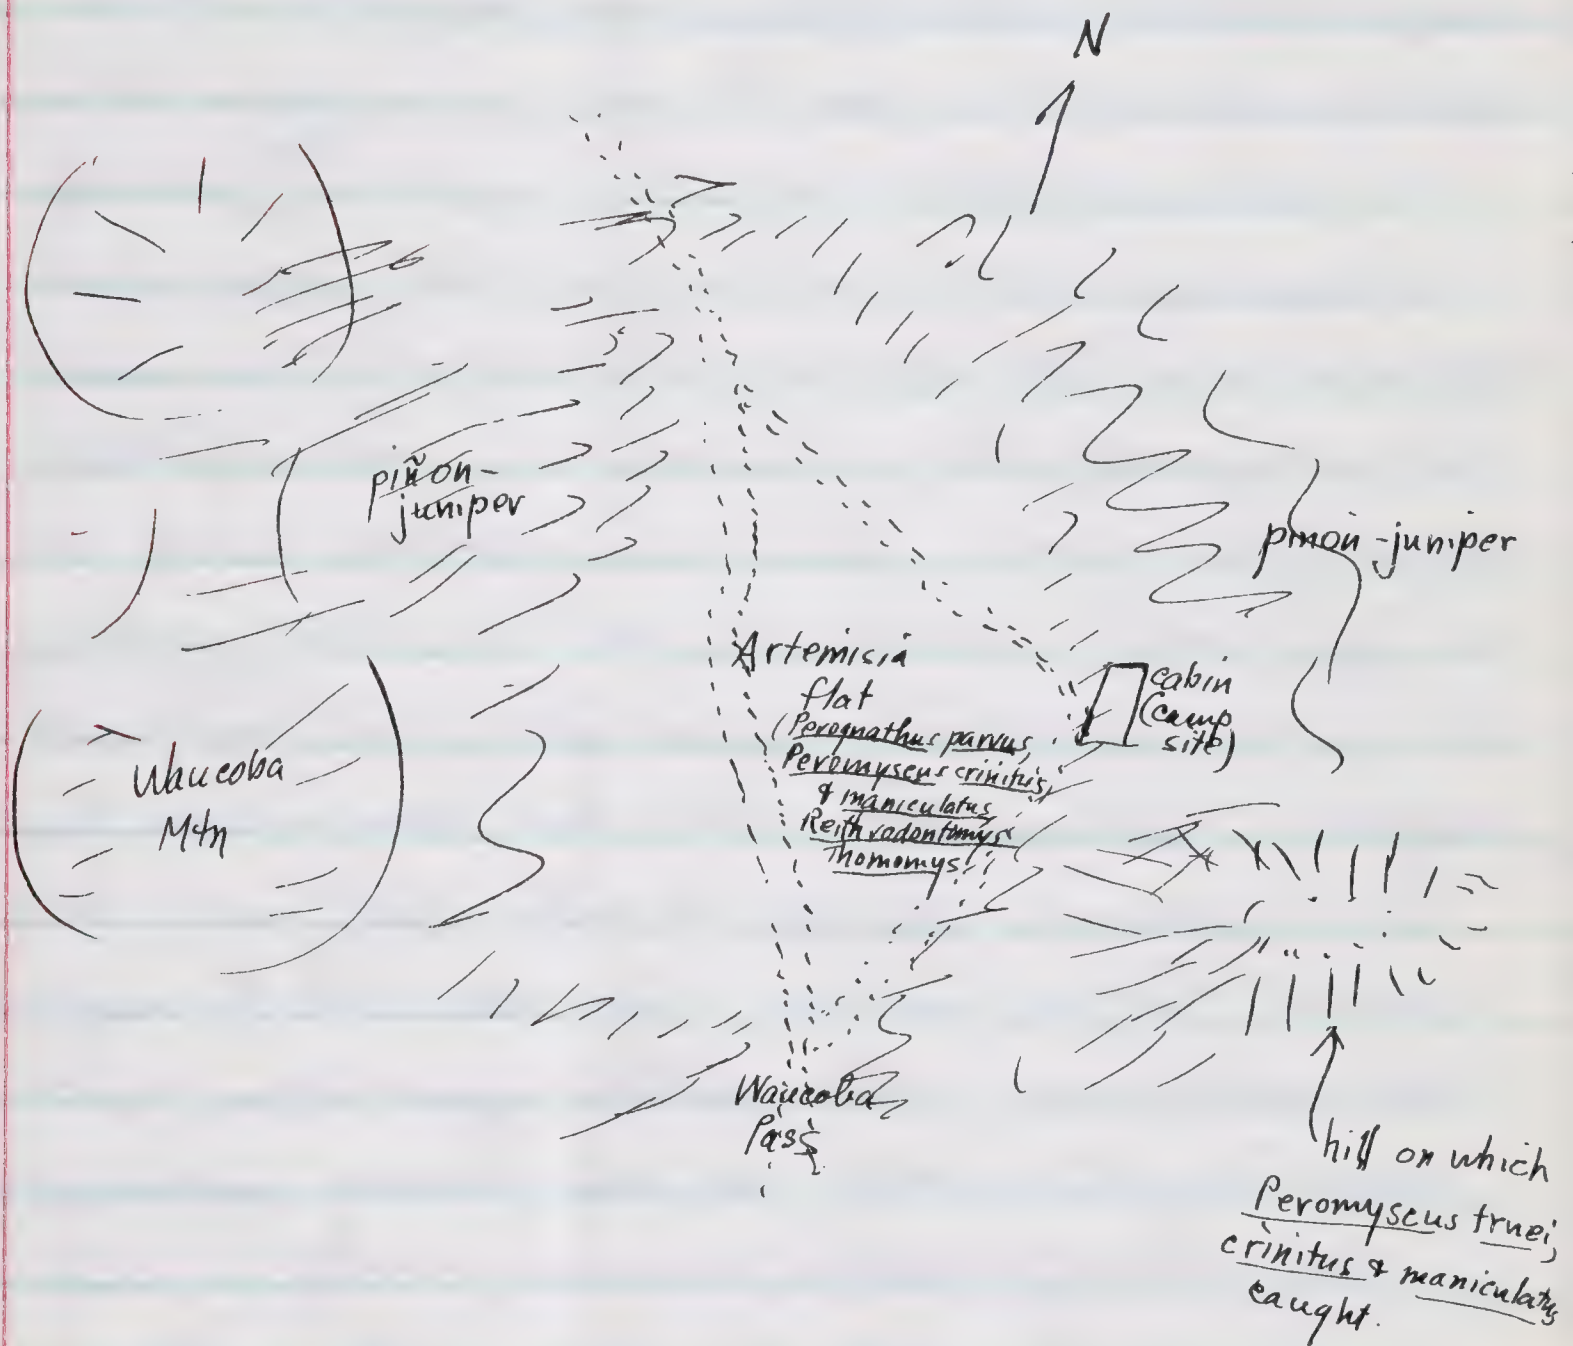 N
piñon-
juniper
piñon-juniper
Artemisia
flat
(Perognathus parvus,
Peromyscus crinitus,
& maniculatus
Reithrodontomys
Thomomys)
cabin
(camp
site)
Waucoba
Mtn
Waucoba
Pass
hill on which
Peromyscus truei,
crinitus & maniculatus
caught.